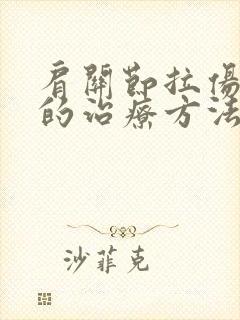 肩關節拉傷
的治療方法
沙菲克